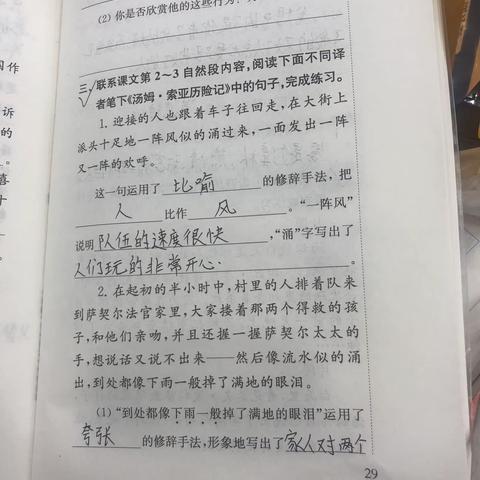 (2) 你是否欣赏他的这些行为?
三、联系课文第2~3自然段内容,阅读下面不同译
者笔下《汤姆·索亚历险记》中的句子,完成练习。
1. 迎接的人也跟着车子往回走,在大街上
派头十足地一阵风似的涌过来,一面发出一阵
又一阵的欢呼。
这一句运用了 比喻 的修辞手法,把
人 比作 风 。“一阵风”
说明 队伍的速度很快 ,“涌”字写出了
人们玩的非常开心. 。
2. 在起初的半小时中,村里的人排着队来
到萨契尔法官家里,大家搂着那两个得救的孩
子,和他们亲吻,并且还握一握萨契尔太太的
手,想说话又说不出来——然后像流水似的涌
出,到处都像下雨一般掉了满地的眼泪。
(1) “到处都像下雨一般掉了满地的眼泪”运用了
夸张 的修辞手法,形象地写出了 家人对两个
29
作
诉
的
。
喜
十